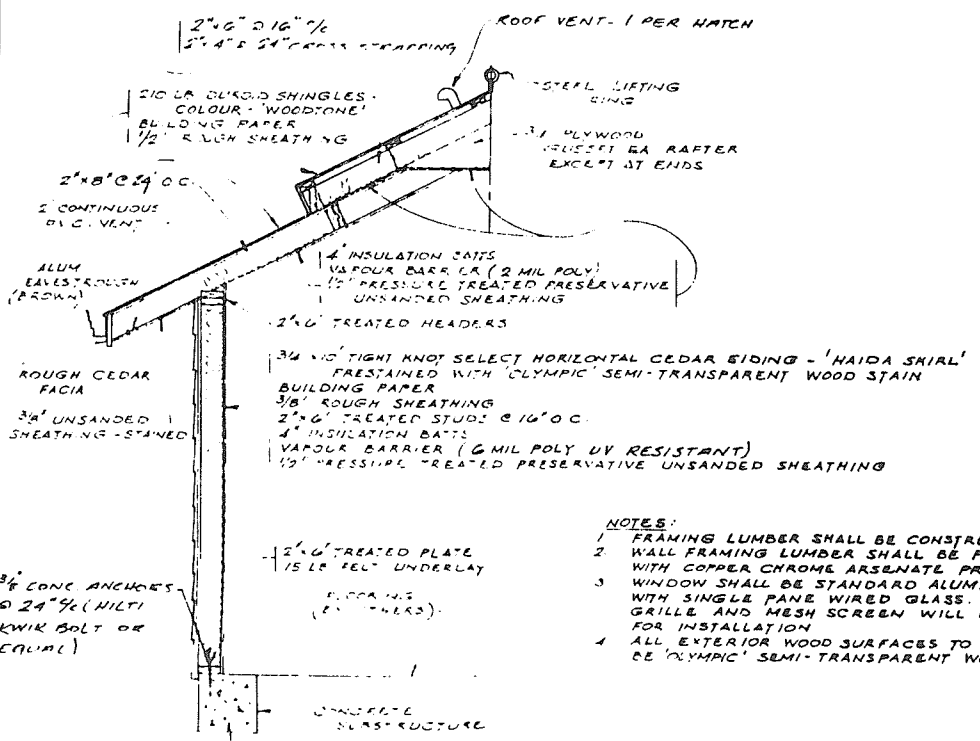 2"x6" @ 16" o/c
2"x4" @ 24" CROSS STRAPPING
ROOF VENT - 1 PER HATCH
STEEL LIFTING
RING
210 LB DUROID SHINGLES -
COLOUR - 'WOODTONE'
BUILDING PAPER
1/2" ROUGH SHEATHING
PLYWOOD
GUSSET EA RAFTER
EXCEPT AT ENDS
2"x8" @ 24" O.C.
2" CONTINUOUS
VENT
ALUM
EAVESTROUGH
(BROWN)
4" INSULATION BATTS
VAPOUR BARRIER (2 MIL POLY)
1/2" PRESSURE TREATED PRESERVATIVE
UNSANDED SHEATHING
2"x6" TREATED HEADERS
ROUGH CEDAR
FACIA
3/8" UNSANDED
SHEATHING - STAINED
3/4"x10" TIGHT KNOT SELECT HORIZONTAL CEDAR SIDING - 'HAIDA SKIRL'
PRESTAINED WITH 'OLYMPIC' SEMI-TRANSPARENT WOOD STAIN
BUILDING PAPER
3/8" ROUGH SHEATHING
2"x6" TREATED STUDS @ 16" O.C.
4" INSULATION BATTS
VAPOUR BARRIER (6 MIL POLY UV RESISTANT)
1/2" PRESSURE TREATED PRESERVATIVE UNSANDED SHEATHING
2"x6" TREATED PLATE
15 LB FELT UNDERLAY
FLOORING
(BY OTHERS)
CONC. ANCHORS
@ 24" o/c (HILTI
KWIK BOLT OR
EQUAL)
CONCRETE
SUBSTRUCTURE
NOTES:
1 FRAMING LUMBER SHALL BE CONSTR
2. WALL FRAMING LUMBER SHALL BE
WITH COPPER CHROME ARSENATE PR
3 WINDOW SHALL BE STANDARD ALUM
WITH SINGLE PANE WIRED GLASS.
GRILLE AND MESH SCREEN WILL
FOR INSTALLATION
4 ALL EXTERIOR WOOD SURFACES TO
BE 'OLYMPIC' SEMI-TRANSPARENT W